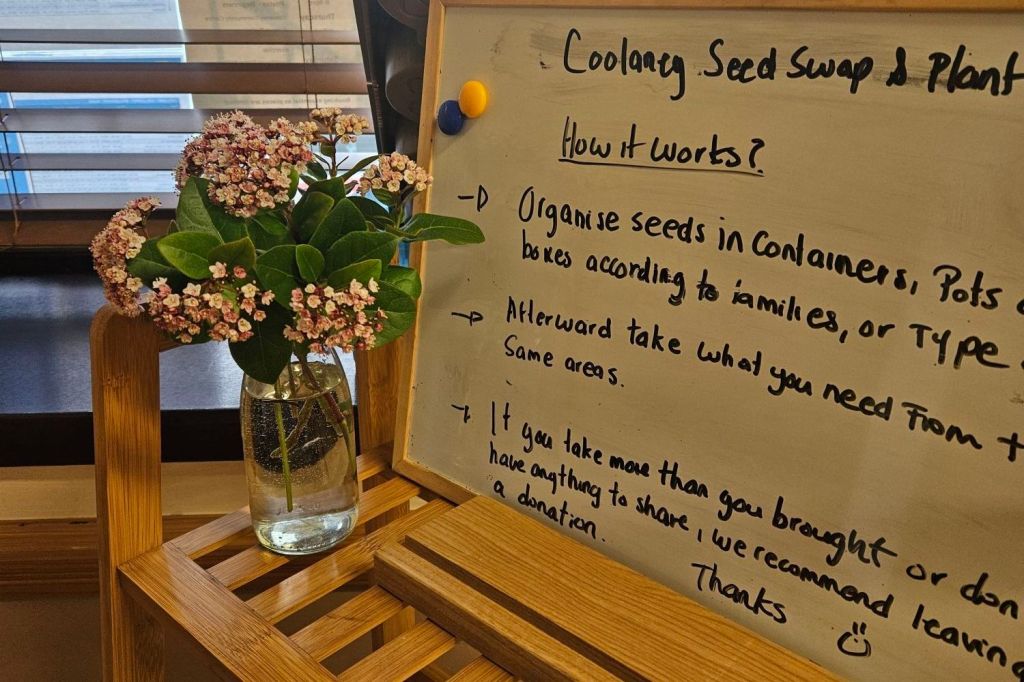 Coolaney Seed Swap & Plant
How it works?
Organise seeds in containers, Pots
boxes according to families, or Type
Afterward take what you need From
Same areas.
If you take more than you brought or don
have anything to share, we recommend leaving
a donation.
Thanks